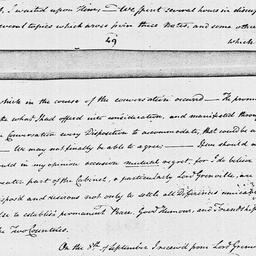 I waited upon Him; — We spent several hours in
several topics which arose from these Notes, and some other
49
which
which in the course of the conversation occurred — He
the what I had offered into consideration, and manifested through
Conversation every Disposition to accommodate, that could be
We may not finally be able to agree; — should
in my opinion occasion mutual regret, for I do believe
greater part of the Cabinet, & particularly Lord Grenville, are
disposed and desirous not only to settle all Differences
to establish permanent Peace, Good Humour, and Friendship
the Two Countries.
On the 5th of September I received from Lord